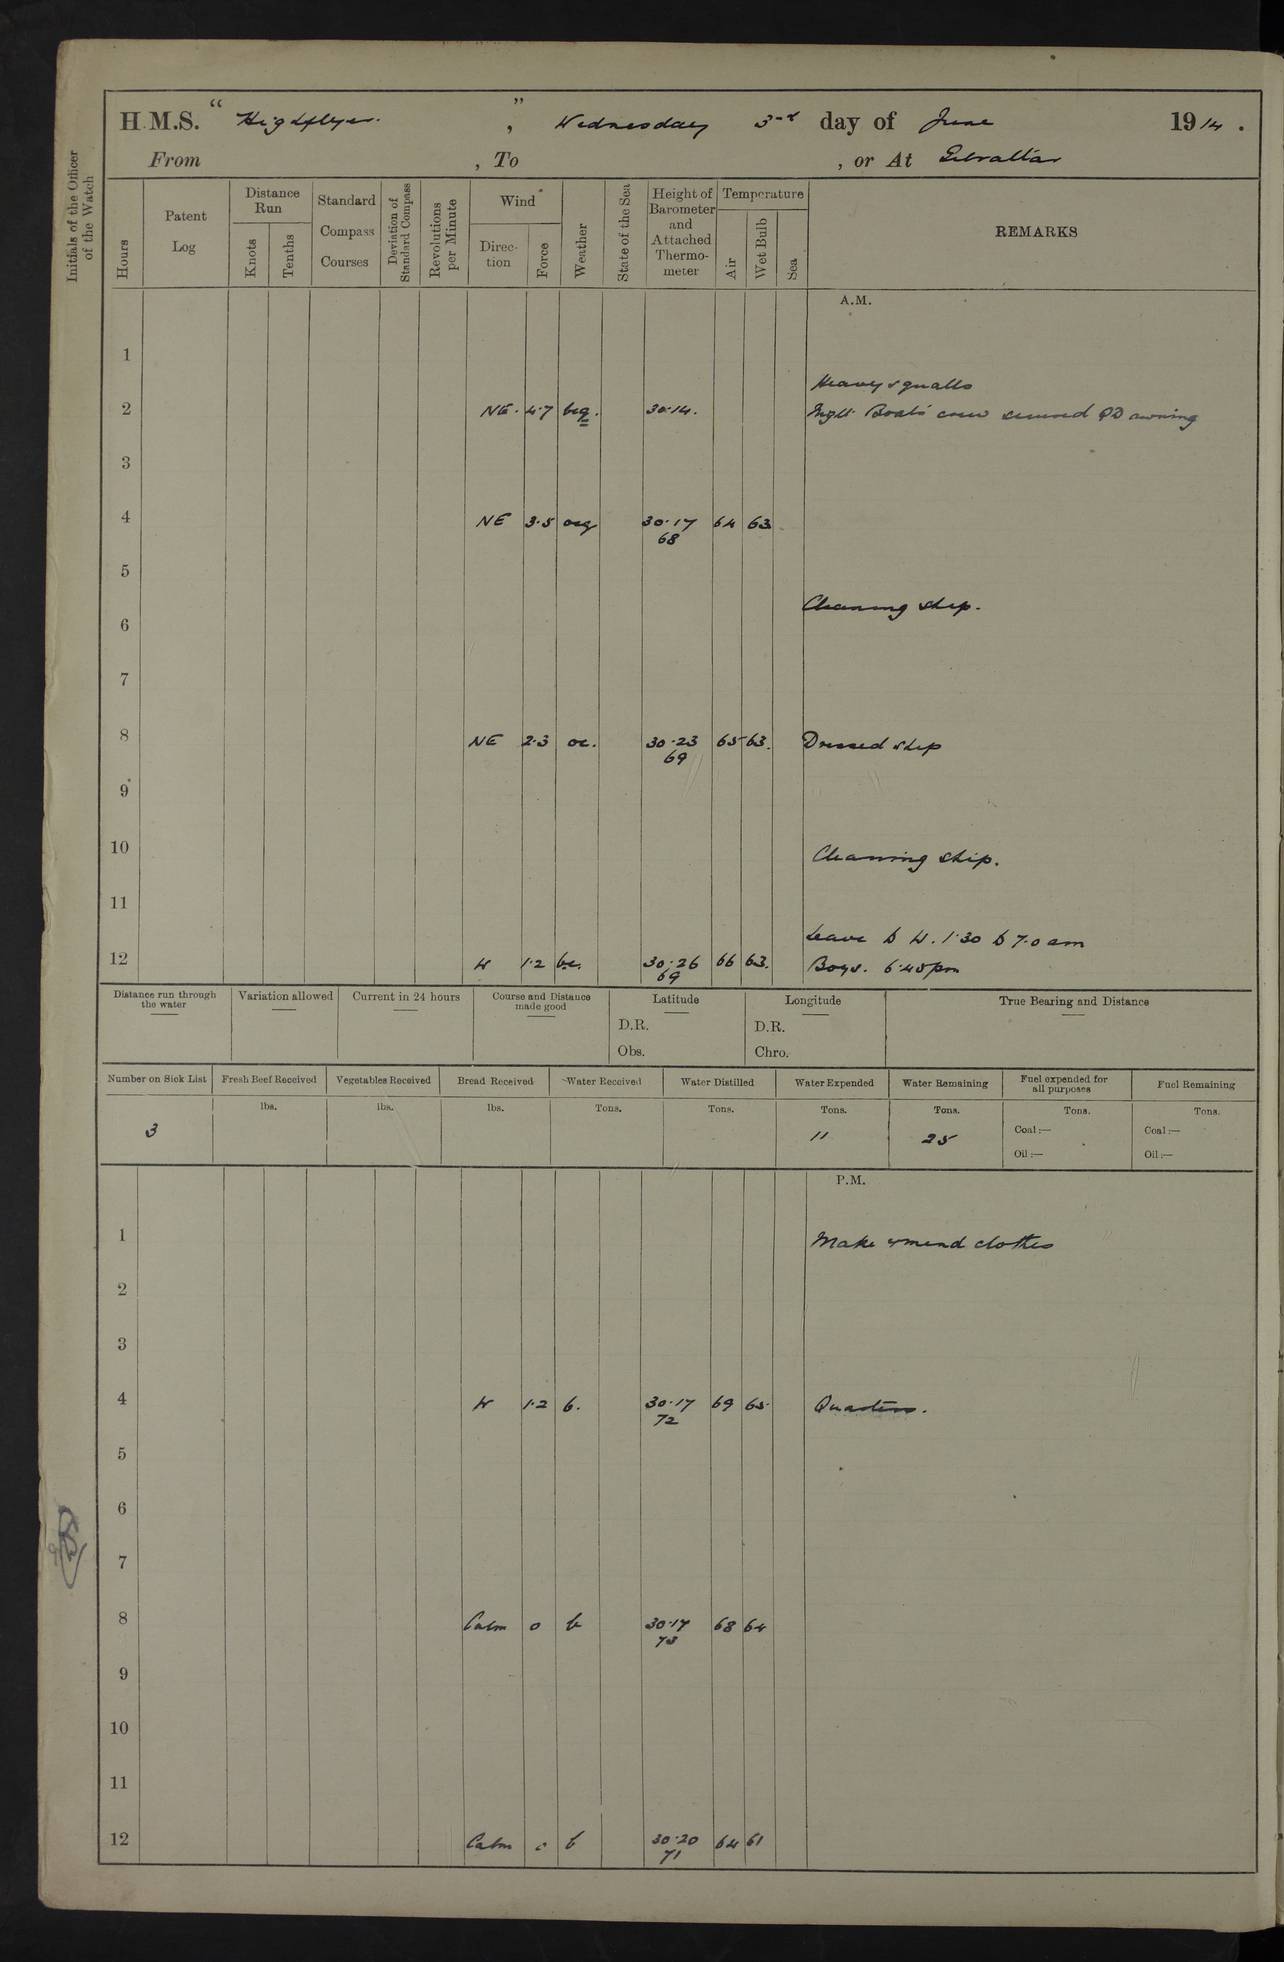 H.M.S. "Highflyer.", Wednesday 3rd day of June 1914.
From , To , or At Gibraltar
Initials of the Officer of the Watch
Hours
Patent Log
Distance Run
Knots
Tenths
Standard Compass Courses
Deviation of Standard Compass
Revolutions per Minute
Wind
Direction
Force
Weather
State of the Sea
Height of Barometer and Attached Thermometer
Temperature
Air
Wet Bulb
Sea
REMARKS
A.M.
1
Heavy squalls
2 NE. 4.7 bcq. 30.14. Night Boat's crew secured QD awning
3
4 NE 3.5 ocq 30.17 64 63
68
5
Cleaning ship.
6
7
8 NE 2.3 oc. 30.23 65 63. Dressed ship
69
9
10 Cleaning ship.
11
Leave to W. 1.30 to 7.0 am
12 W 1.2 bc. 30.26 66 63. Boys. 6.45 pm
69
Distance run through the water
Variation allowed
Current in 24 hours
Course and Distance made good
Latitude
D.R.
Obs.
Longitude
D.R.
Chro.
True Bearing and Distance
Number on Sick List Fresh Beef Received Vegetables Received Bread Received Water Received Water Distilled Water Expended Water Remaining Fuel expended for all purposes Fuel Remaining
lbs. lbs. lbs. Tons. Tons. Tons. Tons. Tons. Tons.
3 11 25
Coal:— Coal:—
Oil:— Oil:—
P.M.
1 Make & mend clothes
2
3
4 W 1.2 b. 30.17 69 65 Quarters.
72
5
6
7
8 Calm 0 b 30.17 68 64
73
9
10
11
12 Calm 0 b 30.20 64 61
71